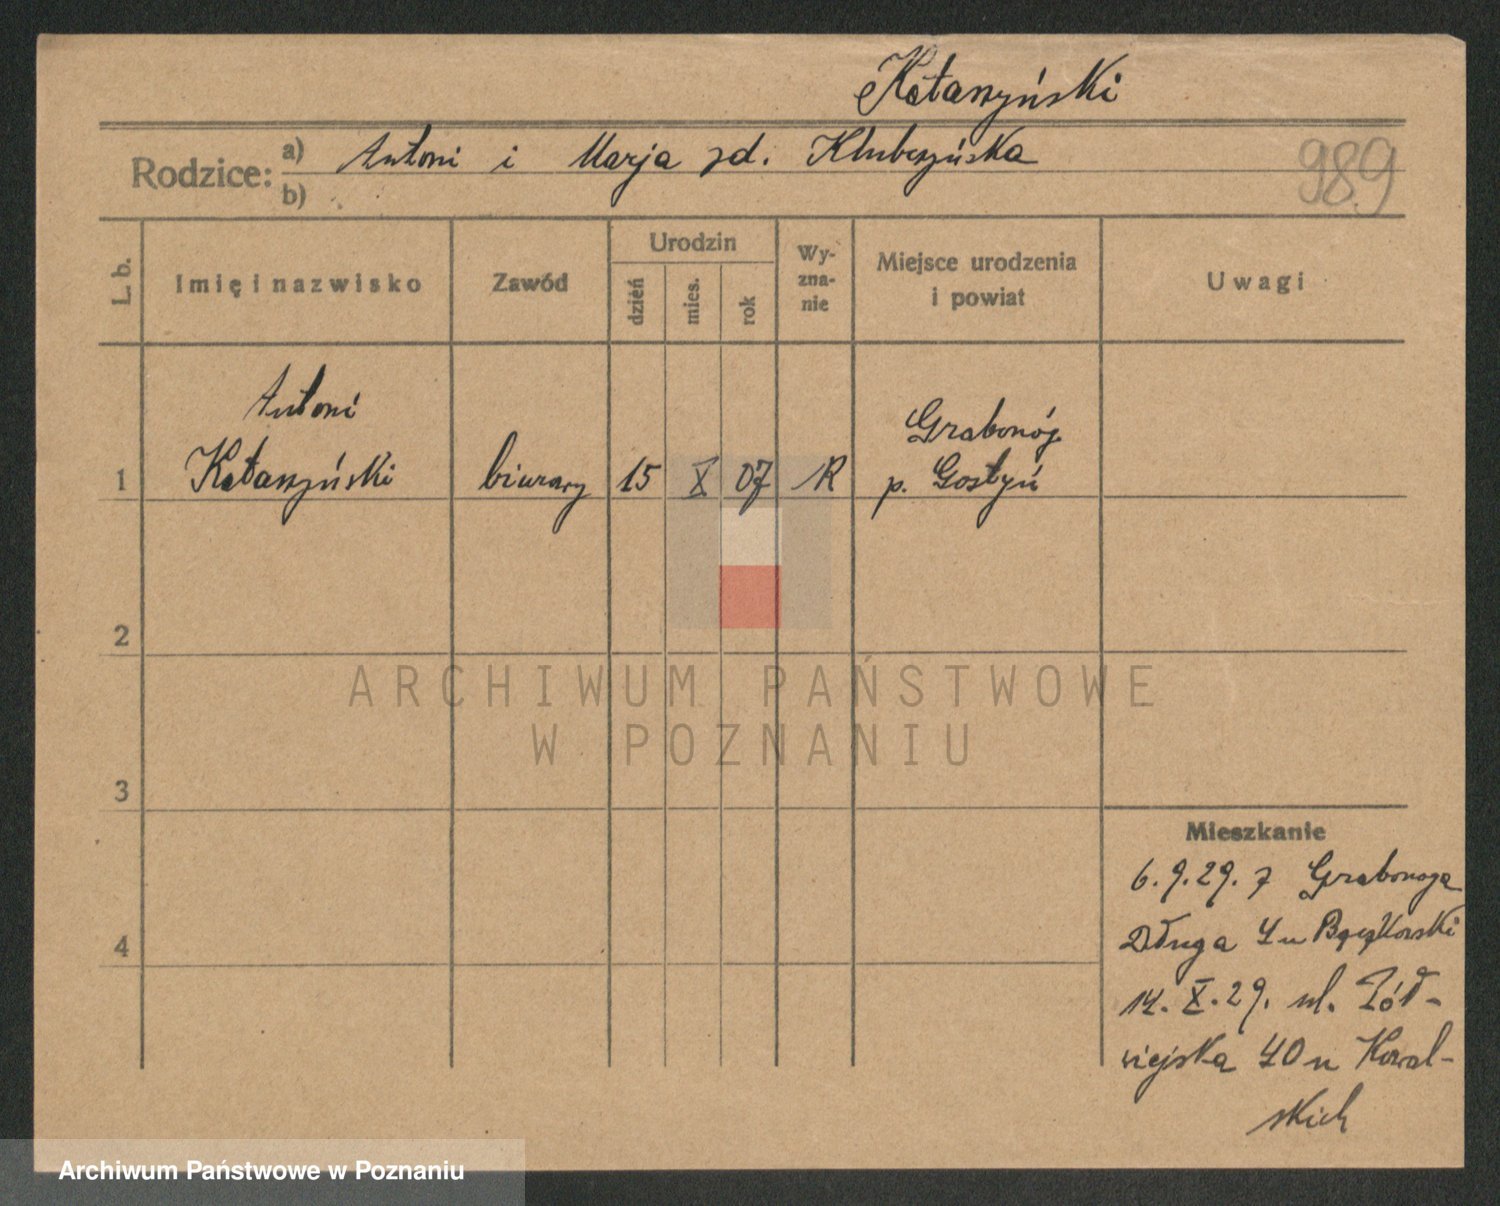 Kotaszyński
Rodzice: a) Antoni i Marja zd. Klubczyńska
b)
989
L. b.
Imię i nazwisko
Zawód
Urodzin
dzień
mies.
rok
Wy-
zna-
nie
Miejsce urodzenia
i powiat
Uwagi
Antoni
Grabonóg
1 Kotaszyński biurowy 15 X 07 R p. Gostyń
2
ARCHIWUM PAŃSTWOWE
W POZNANIU
3
4
Mieszkanie
6.9.29. z Grabonoga
Długa 4 u
14.X.29. ul. Żół-
wiejska 40 u Kowal-
skich
Archiwum Państwowe w Poznaniu